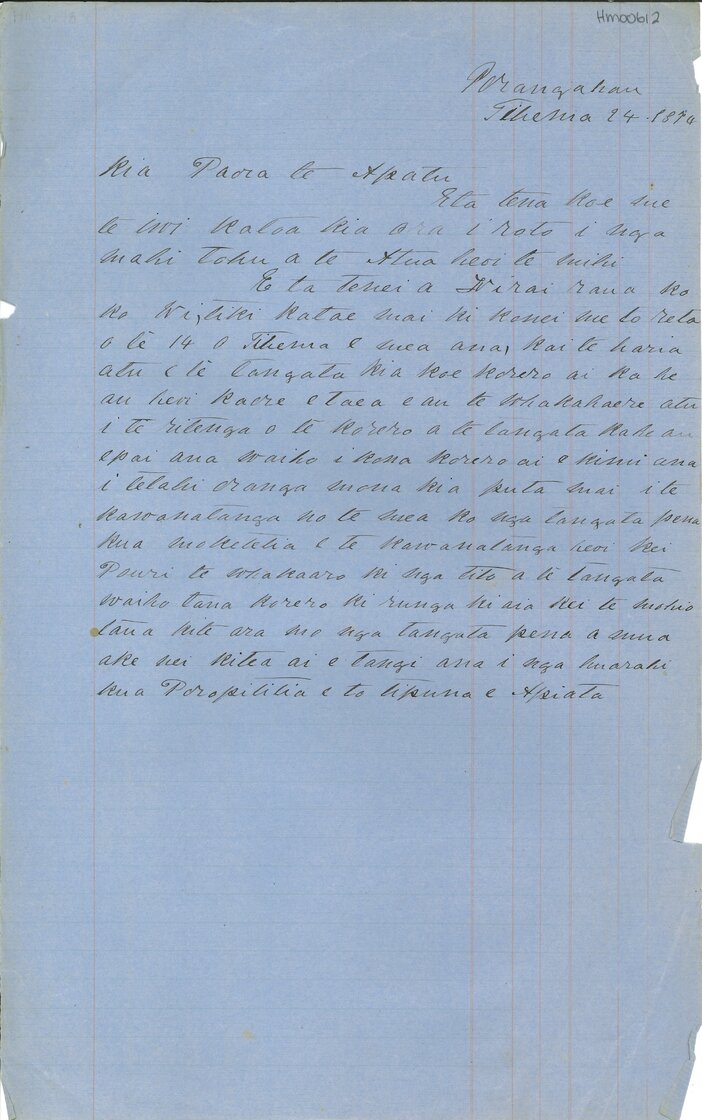 Hm00612
Porangahau
Tihema 24. 1874
Kia Paora te Apatu
E ta tena koe me
te iwi katoa kia ora i roto i nga
mahi tohu a te Atua heoi te mihi
E ta tenei a
ko Wi, tiki katae mai ki konei me to reta
o te 14 o Tihema e mea ana, kai te haria
atu e te tangata kia koe korero ai ka he
au heoi kaore e taea e au te whakahaere atu
i te ritenga o te korero a te tangata kahe au
epai ana waiho i kona korero ai e kimi ana
i tetahi oranga mona kia puta mai i te
kawanatanga no te mea ko nga tangata pena
kua moketitia e te kawanatanga heoi kei
Pouri te whakaaro ki nga tito a te tangata
waiho tana korero ki runga ki aia kei te mohio
tana kite ara mo nga tangata pena a mua
ake nei kitea ai e tangi ana i nga huarahi
kua Poropititia e to tipuna e Apiata